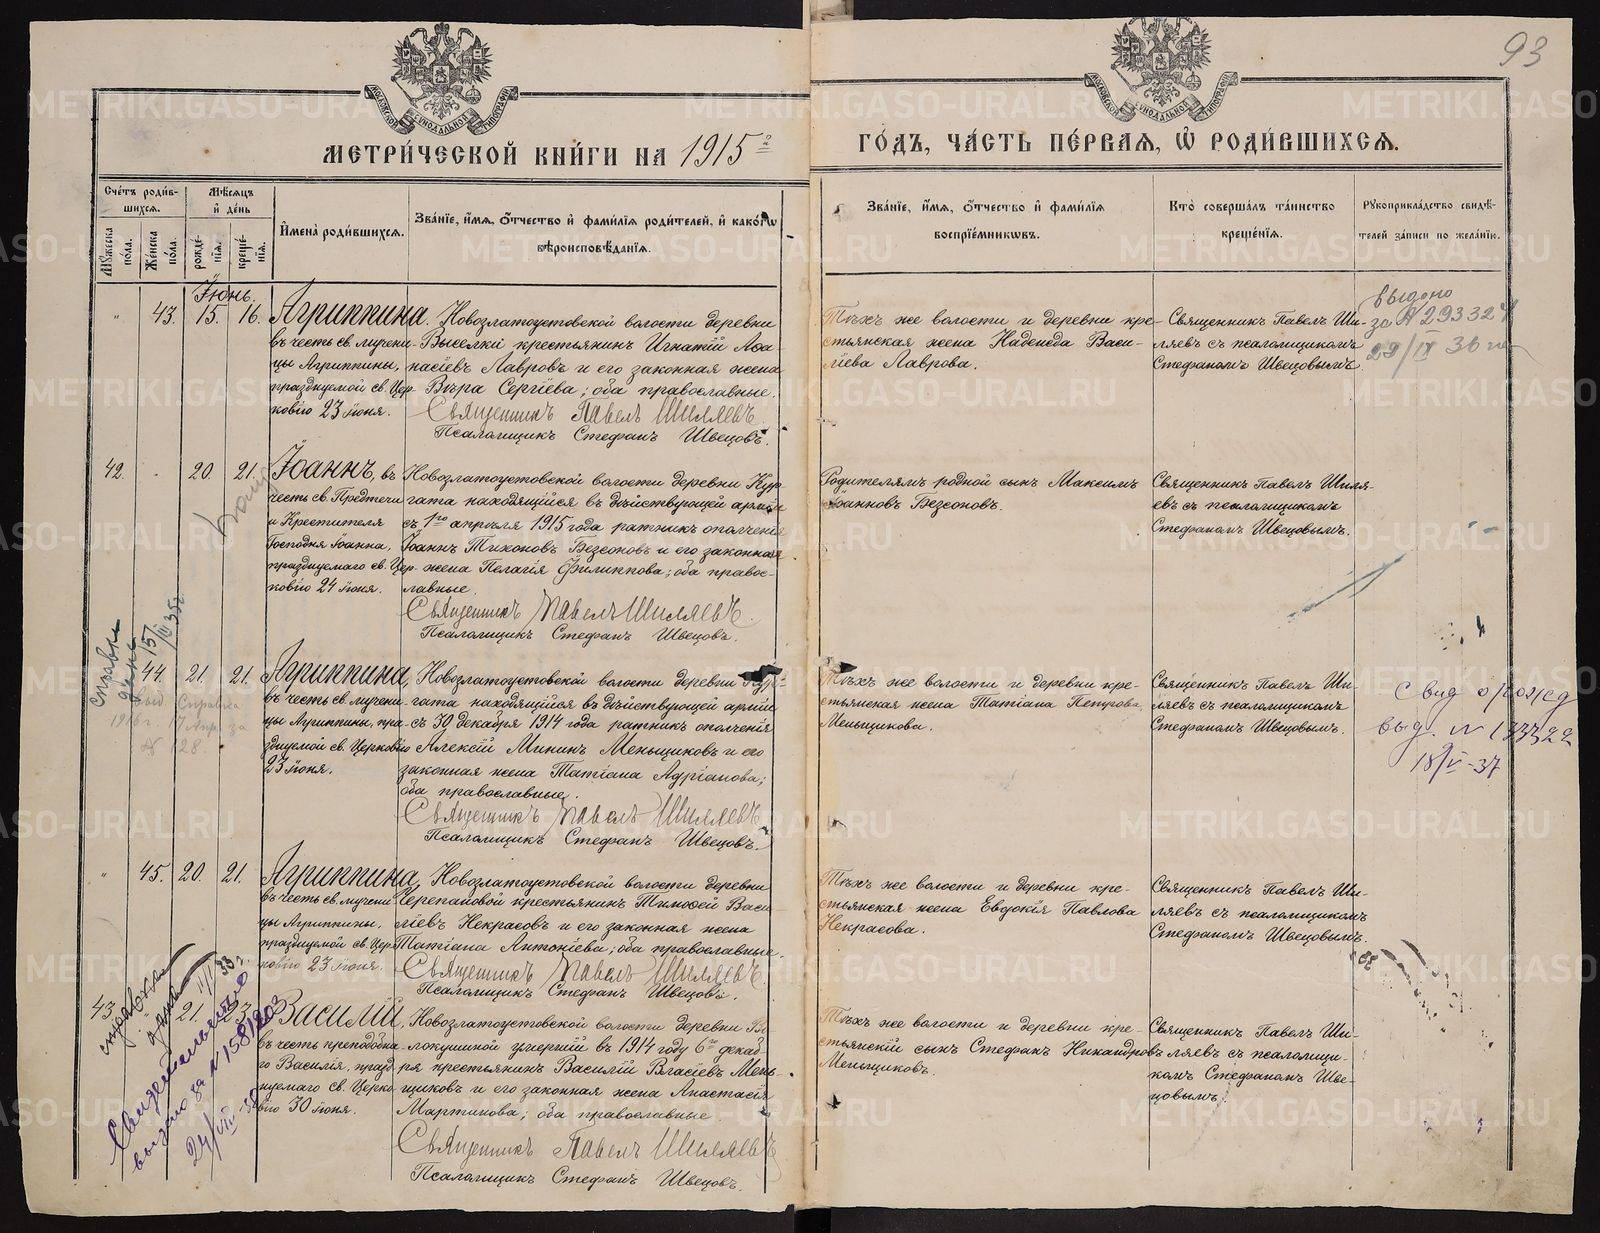 93
МЕТРИ́ЧЕСКОЙ КНИ́ГИ НА 1915 г
ГО́ДЪ, ЧА́СТЬ ПЕ́РВАЯ, Ѡ РОДИ́ВШИХСЯ.
Сче́тъ роди́в-
шихся.
Мѣ́сяцъ
и҆ де́нь
Му́жеска
по́ла.
Же́нска
по́ла.
рожде́-
нїя.
креще́-
нїя.
И҆мена̀ роди́вшихся.
Зва́нїе, и҆́мя, ѻ҆́тчество и҆ фами́лїя роди́телей, и҆ како́гѡ
вѣроисповѣ́данїя.
Зва́нїе, и҆́мя, ѻ҆́тчество и҆ фами́лїя
воспрїе́мникѡвъ.
Кто̀ соверша́лъ та́инство
креще́нїя.
Рꙋкоприкла́дство свидѣ́-
телей за́писи по жела́нїю.
Іюнь.
43. 15. 16.
Агриппина.
въ честь св. мучени-
цы Агриппины,
празднуемой св. Цер-
ковію 23 іюня.
Новозлатоустовской волости деревни
Выселки крестьянинъ Игнатій Аѳа-
насіевъ Лавровъ и его законная жена
Вѣра Сергіева; оба православные.
Священникъ Павелъ Шиляевъ
Псаломщикъ Стефанъ Швецовъ.
Тѣхъ же волости и деревни кре-
стьянская жена Надежда Васи-
ліева Лаврова.
Священникъ Павелъ Ши-
ляевъ съ псаломщикомъ
Стефаномъ Швецовымъ.
выдано
за № 293324
29/IX 36 г
42. 20. 21.
Іоаннъ, въ
честь св. Предтечи
и Крестителя
Господня Іоанна,
празднуемаго св. Цер-
ковію 24 іюня.
Новозлатоустовской волости деревни Кур-
гата находящійся въ дѣйствующей арміи
съ 1го апрѣля 1915 года ратникъ ополченія
Іоаннъ Тихоновъ Безсоновъ и его законная
жена Пелагія Филиппова; оба право-
славные.
Священникъ Павелъ Шиляевъ.
Псаломщикъ Стефанъ Швецовъ.
Родителямъ родной сынъ Максимъ
Іоанновъ Безсоновъ.
Священникъ Павелъ Шиля-
евъ съ псаломщикомъ
Стефаномъ Швецовымъ.
справка
дана 15/III 35 г.
44. 21. 21.
выд Справка
1916 г. 17 Апр. за
№ 128
Агриппина,
въ честь св. мучени-
цы Агриппины, пра-
зднуемой св. Церковію
23 іюня.
Новозлатоустовской волости деревни Кур-
гата находящійся въ дѣйствующей арміи
съ 30 декабря 1914 года ратникъ ополченія
Алексій Мининъ Меньщиковъ и его
законная жена Татіана Адріанова;
оба православные.
Священникъ Павелъ Шиляевъ
Псаломщикъ Стефанъ Швецовъ.
Тѣхъ же волости и деревни кре-
стьянская жена Татіана Петрова
Меньщикова.
Священникъ Павелъ Ши-
ляевъ съ псаломщикомъ
Стефаномъ Швецовымъ.
Свид о рожд
выд. №
18/V-37
45. 20. 21.
Агриппина,
въ честь св. мучени-
цы Агриппины,
празднуемой св. Цер-
ковію 23 іюня.
Новозлатоустовской волости деревни
Черепановой крестьянинъ Тимоѳей Васи-
ліевъ Некрасовъ и его законная жена
Татіана Антоніева; оба православные.
Священникъ Павелъ Шиляевъ.
Псаломщикъ Стефанъ Швецовъ.
Тѣхъ же волости и деревни кре-
стьянская жена Евдокія Павлова
Некрасова.
Священникъ Павелъ Ши-
ляевъ съ псаломщикомъ
Стефаномъ Швецовымъ.
43. 21. 23.
Василій,
въ честь преподобна-
го Василія, празд-
нуемаго св. Церко-
вію 30 іюня.
Новозлатоустовской волости деревни Во-
локушиной умершій въ 1914 году 6го декаб-
ря крестьянинъ Василій Власіевъ Мень-
щиковъ и его законная жена Анастасія
Мартинова; оба православные
Священникъ Павелъ Шиляевъ
Псаломщикъ Стефанъ Швецовъ.
Тѣхъ же волости и деревни кре-
стьянскій сынъ Стефанъ Никандровъ
Меньщиковъ.
Священникъ Павелъ Ши-
ляевъ съ псаломщи-
комъ Стефаномъ Шве-
цовымъ.
справка
дана 33 г.
Свидетельство
выдано за № 158/203